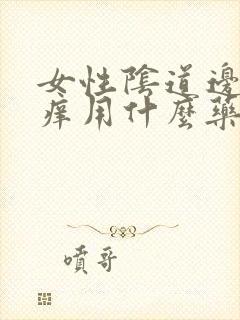 女性陰道邊
痒用什麼藥
噴哥